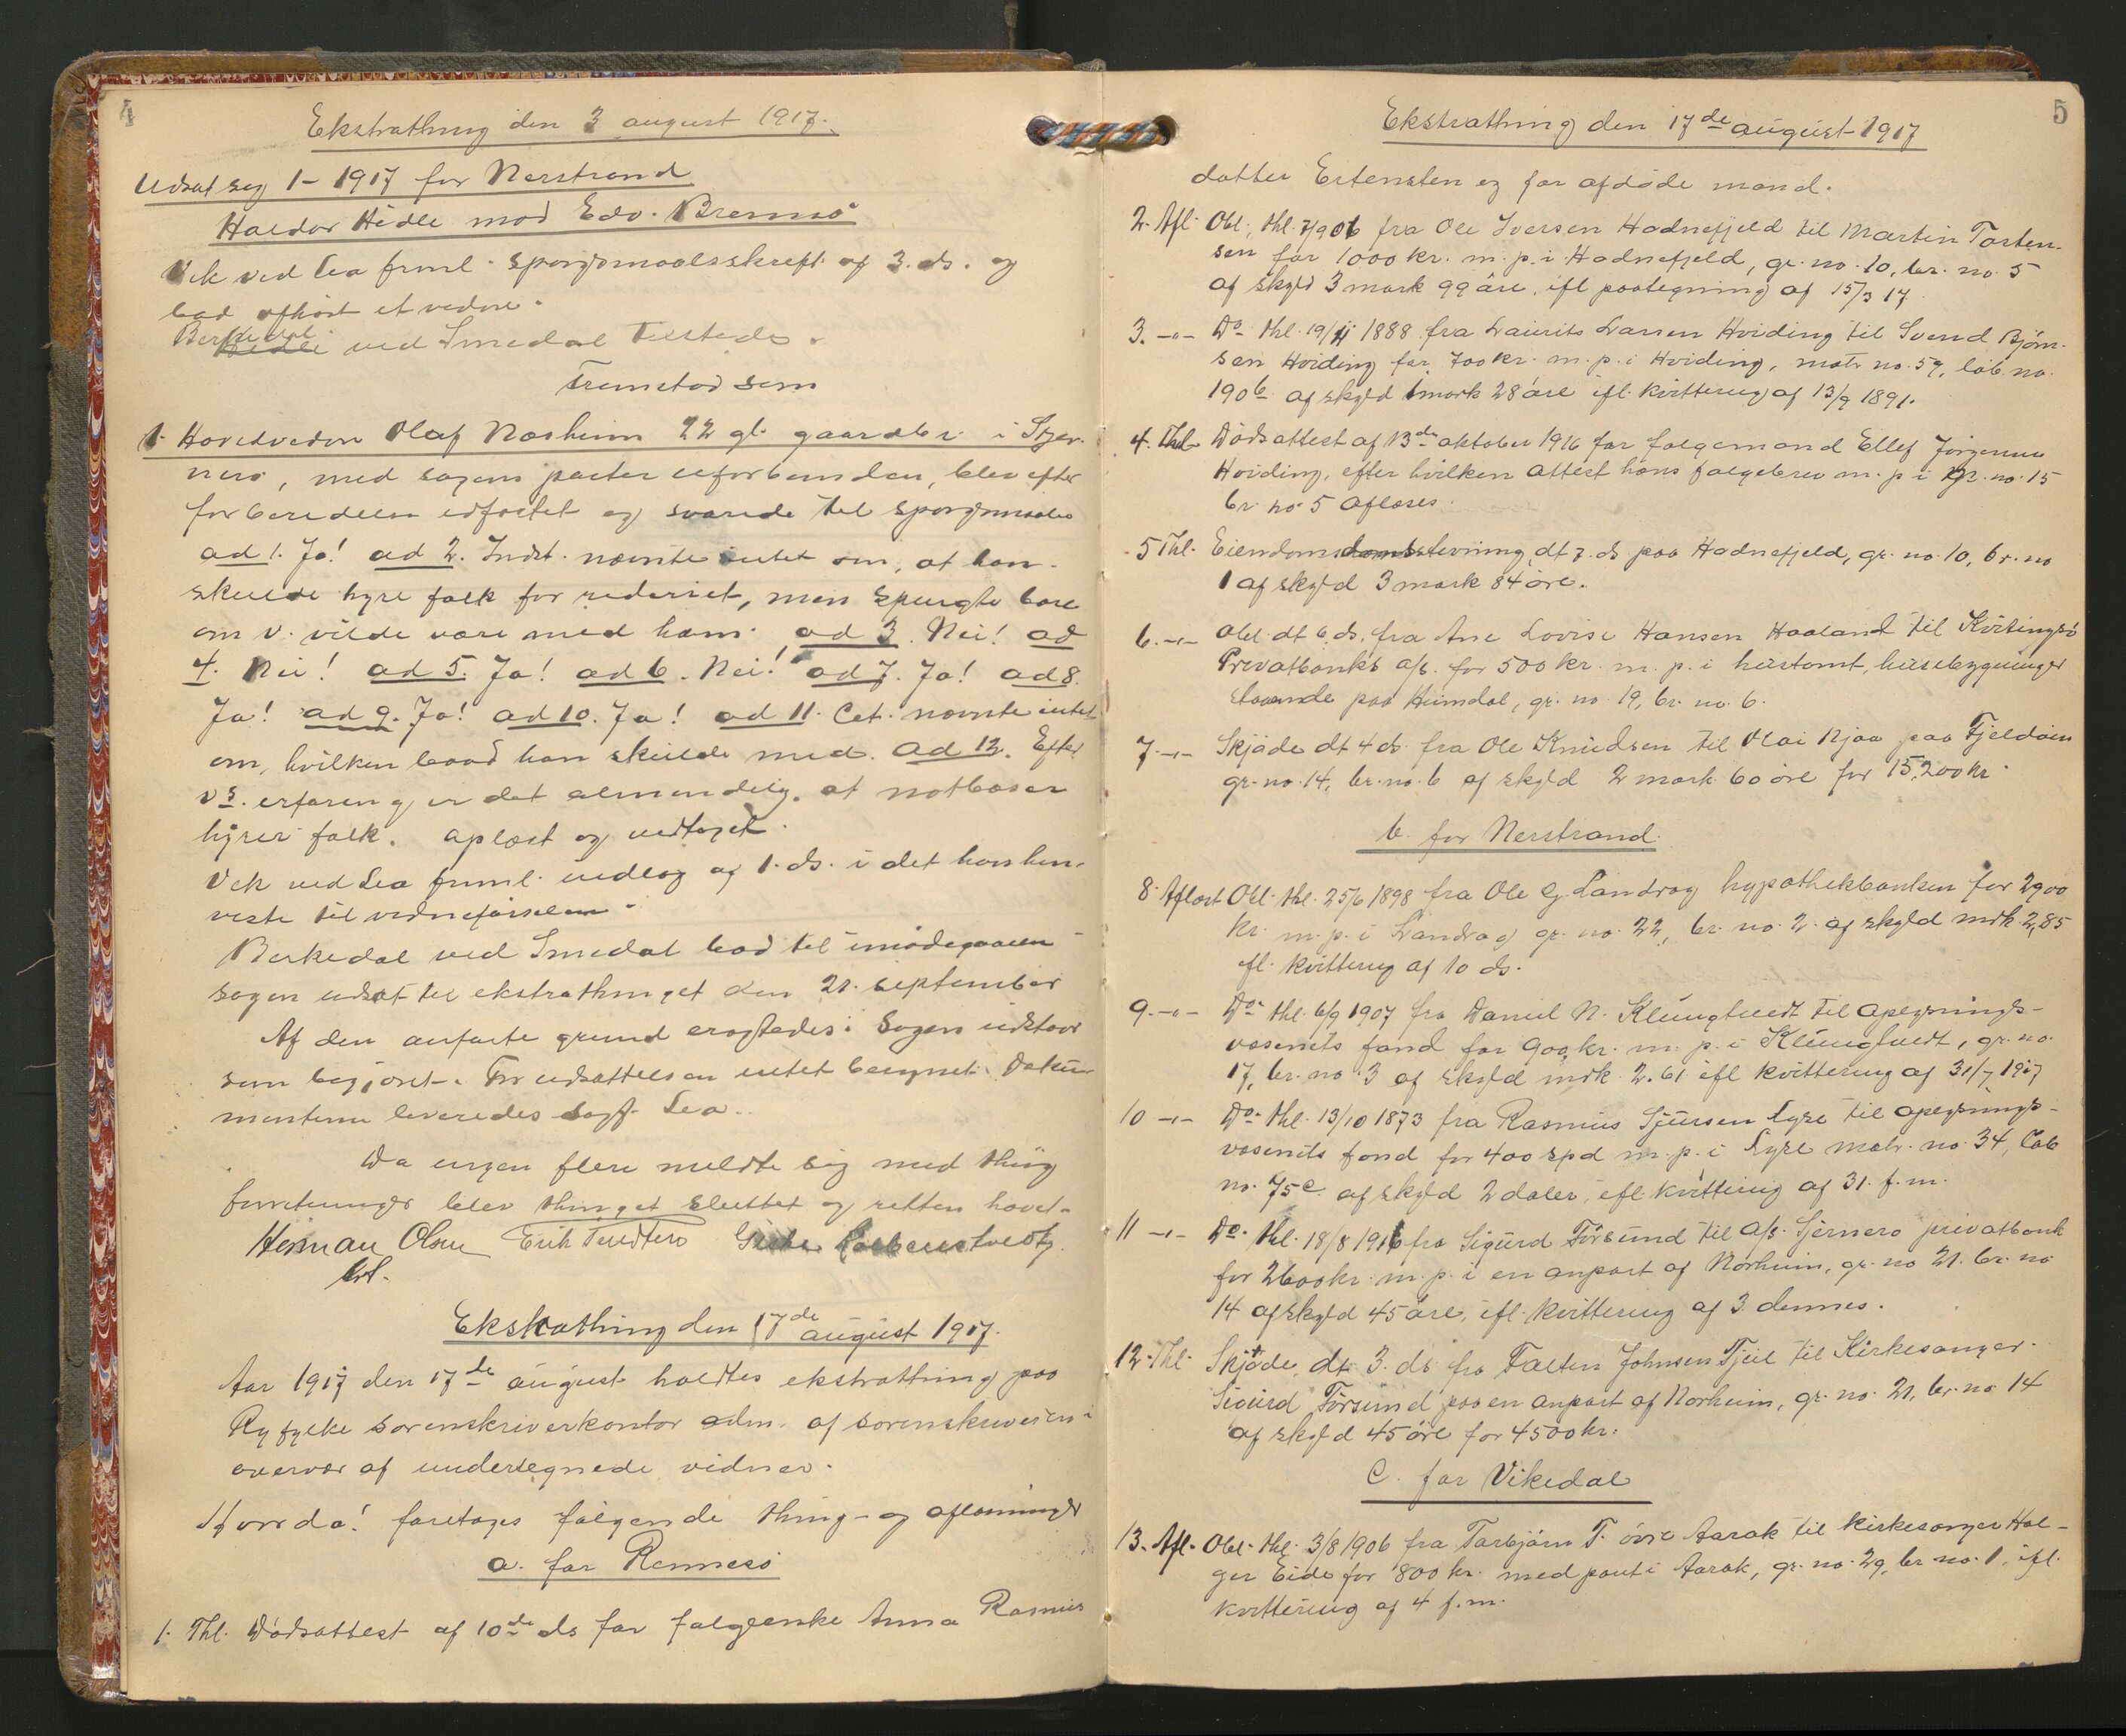 4
Ekstrathing den 3 august 1917.
Udsat sag 1 - 1917 for Nerstrand
Haldor Hidle mod Edv. Bremsø
Vek ved Lea freml. spørgsmaalsskrift af 3. ds. og
bad afhørt et vidne.
Berkedal ved Smedal tilstede.
Fremstod som
1. Hovedvidne Olaf Næsheim 22 gl. gaardbr. i Sjer-
nerø, med sagens parter uforbunden, blev efter
forberedelse edfæstet og svarede til spørgsmaalene
ad 1. Ja! ad 2. Indst. nævnte intet om, at han
skulde hyre folk for rederiet, men spurgte bare
om v. vilde være med ham. ad 3. Nei! ad
4. Nei! ad 5. Ja! ad 6. Nei! ad 7. Ja! ad 8.
Ja! ad 9. Ja! ad 10. Ja! ad 11. Cit. nævnte intet
om, hvilken baad han skulde med. Ad 12. Efter
vs. erfaring er det almindelig, at notbaser
hyrer folk. Oplæst og vedtaget.
Vek ved Lea freml. indlæg af 1. ds. i det han hen-
viste til vidneførselen.
Berkedal ved Smedal bad til imødegaaen
sagen udsat til ekstrathinget den 21. september
Af den anførte grund eragtedes: Sagen udstaar
som begjæret. For udsættelsen intet beregnet. Doku-
menterne leveredes sagf. Lea.
Da ingen flere meldte sig med thing
forretninger blev thinget sluttet og retten hævet.
Herman Olsen Erik Tendtern
Ekstrathing den 17de august 1917.
Aar 1917 den 17de august holdtes ekstrathing paa
Ryfylke sorenskriverkontor adm. af sorenskriveren i
overvær af undertegnede vidner.
Hvorda! foretages følgende thing- og aflæsninger
a. for Rennesø
1. Thl. Dødsattest af 10de ds for følgeenke Anna Rasmus
5
Ekstrathing den 17de august 1917
datter Ertensten og for afdøde mand.
2. Afl. Obl. thl. 7/9 06 fra Ole Iversen Hodnefjeld til Martin Torten-
sen for 1000 kr. m. p. i Hodnefjeld, gr. no. 10, br. no. 5
af skyld 3 mark 99 øre, ifl paategning af 15/3 17.
3. -"- Do. thl. 19/4 1888 fra Laurits Larsen Hviding til Svend Bjørn-
sen Hviding for 700 kr. m. p. i Hviding, matr no. 59, løb. no.
190b af skyld 1 mark 28 øre ifl. kvittering af 13/9 1891.
4. Thl. Dødsattest af 13de oktober 1916 for følgemand Ellef Jørgensen
Hviding, efter hvilken attest hans følgebrev m. p. i gr. no. 15
br. no. 5 afløses.
5 Thl. Eiendomsdomsstevning dt 7. ds paa Hodnefjeld, gr. no. 10, br. no
1 af skyld 3 mark 84 øre.
6. -"- Obl. dt 6. ds. fra Ane Lovise Hansen Haaland til Kvitingsø
Privatbank's a/s. for 500 kr. m. p. i hustomt, husebygninger
staaende paa Heimdal, gr. no. 19, br. no. 6.
7 -"- Skjøde dt 4 ds. fra Ole Knudsen til Olai Njaa paa Fjeldøien
gr. no. 14, br. no. 6 af skyld 2 mark 60 øre for 15,200 kr.
b. for Nerstrand.
8. Aflæst Obl. thl. 25/6 1898 fra Ole G Landrag hypothekbanken for 2900
kr. m. p. i Landrag gr. no. 22, br. no. 2. af skyld mrk 2,85
ifl. kvittering af 10 ds.
9. -"- Do. thl. 6/9 1907 fra Daniel N. Klungtvedt til oplysnings-
væsenets fond for 900 kr. m. p. i Klungtvedt, gr. no.
17, br. no 3 af skyld mrk. 2.61 ifl kvittering af 31/7 1917
10 -"- Do. thl. 13/10 1873 fra Rasmus Sjursen Lyse til oplysnings-
væsenets fond for 400 spd m. p. i Lyse matr. no. 34, løb
no. 75c. af skyld 2 daler, ifl. kvittering af 31. f. m.
11 -"- Do. thl. 18/8 1916 fra Sigurd Førsund til a/s. Sjernerø privatbank
for 2600 kr. m. p. i en anpart af Norheim, gr. no 21. br. no
14 af skyld 45 øre, ifl. kvittering af 3. dennes.
12. Thl. Skjøde dt. 3. ds fra Falten Johnsen Tjeil til Kirkesanger
Sigurd Førsund paa en anpart af Norheim, gr. no. 21, br. no 14
af skyld 45 øre for 4500 kr.
C. for Vikedal
13. Afl. Obl. thl. 3/8 1906 fra Torbjørn T. øvre Aarak til kirkesanger Hol-
ger Eide for 800 kr. med pant i Aarak, gr. no. 29, br no. 1, ifl.
kvittering af 4 f. m.